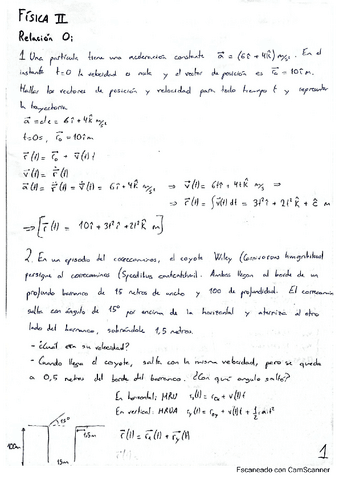 FÍSICA II
Relación 0:
1. Una partícula tiene una aceleración constante a⃗ = (6î + 4k̂) m/s². En el
instante t=0 la velocidad es nula y el vector de posición es r⃗₀ = 10î m.
Hallar los vectores de posición y velocidad para todo tiempo t y representar
la trayectoria.
a⃗ = cte = 6î + 4k̂ m/s²
t=0s, r⃗₀ = 10î m
r⃗(t) = r⃗₀ + v⃗(t) t
v⃗(t) = r⃗̇(t)
a⃗(t) = r⃗̈(t) = v⃗̇(t) = 6î + 4k̂ m/s² ⇒ v⃗(t) = 6tî + 4tk̂ m/s ⇒
⇒ r⃗(t) = ∫v⃗(t) dt = 3t²î + 2t²k̂ + c⃗ m
⇒ [r⃗(t) = 10î + 3t²î + 2t²k̂ m]
2. En un episodio del correcaminos, el coyote Wiley
persigue al correcaminos (Speedibus
Ambos llegan al borde de un
profundo barranco de 15 metros de ancho y 100 de profundidad. El correcaminos
salta con ángulo de 15° por encima de la horizontal y aterriza al otro
lado del barranco, sobrándole 1,5 metros.
- ¿Cuál era su velocidad?
- Cuando llega el coyote, salta con la misma velocidad, pero se queda
a 0,5 metros del borde del barranco. ¿Con qué ángulo saltó?
En horizontal: MRU
En vertical: MRUA
r⃗(t) = r⃗ₓ(t) + r⃗ᵧ(t)
15°
100m
1,5m
15m
1
Escaneado con CamScanner